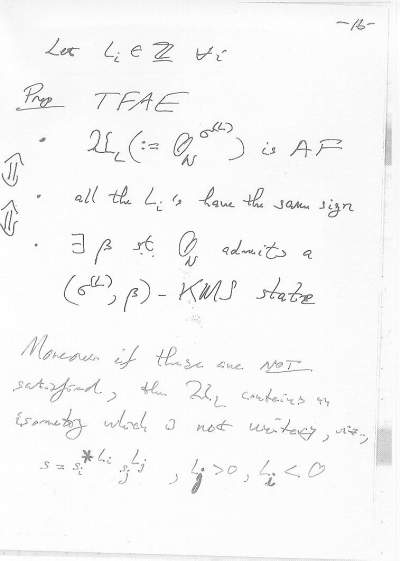 -16-
Let L_i ∈ ℤ ∀i
Prop TFAE
• 𝔄_L (:= O_N^{σ^{(L)}}) is AF
⇕
• all the L_i's have the same sign
⇕
• ∃ β s.t. O_N admits a
(σ^{(L)}, β) - KMS state
Moreover if these are NOT
satisfied, then 𝔄_L contains an
isometry which is not unitary, viz.,
s = s_i^{* L_i} s_j^{L_j} , L_j > 0, L_i < 0